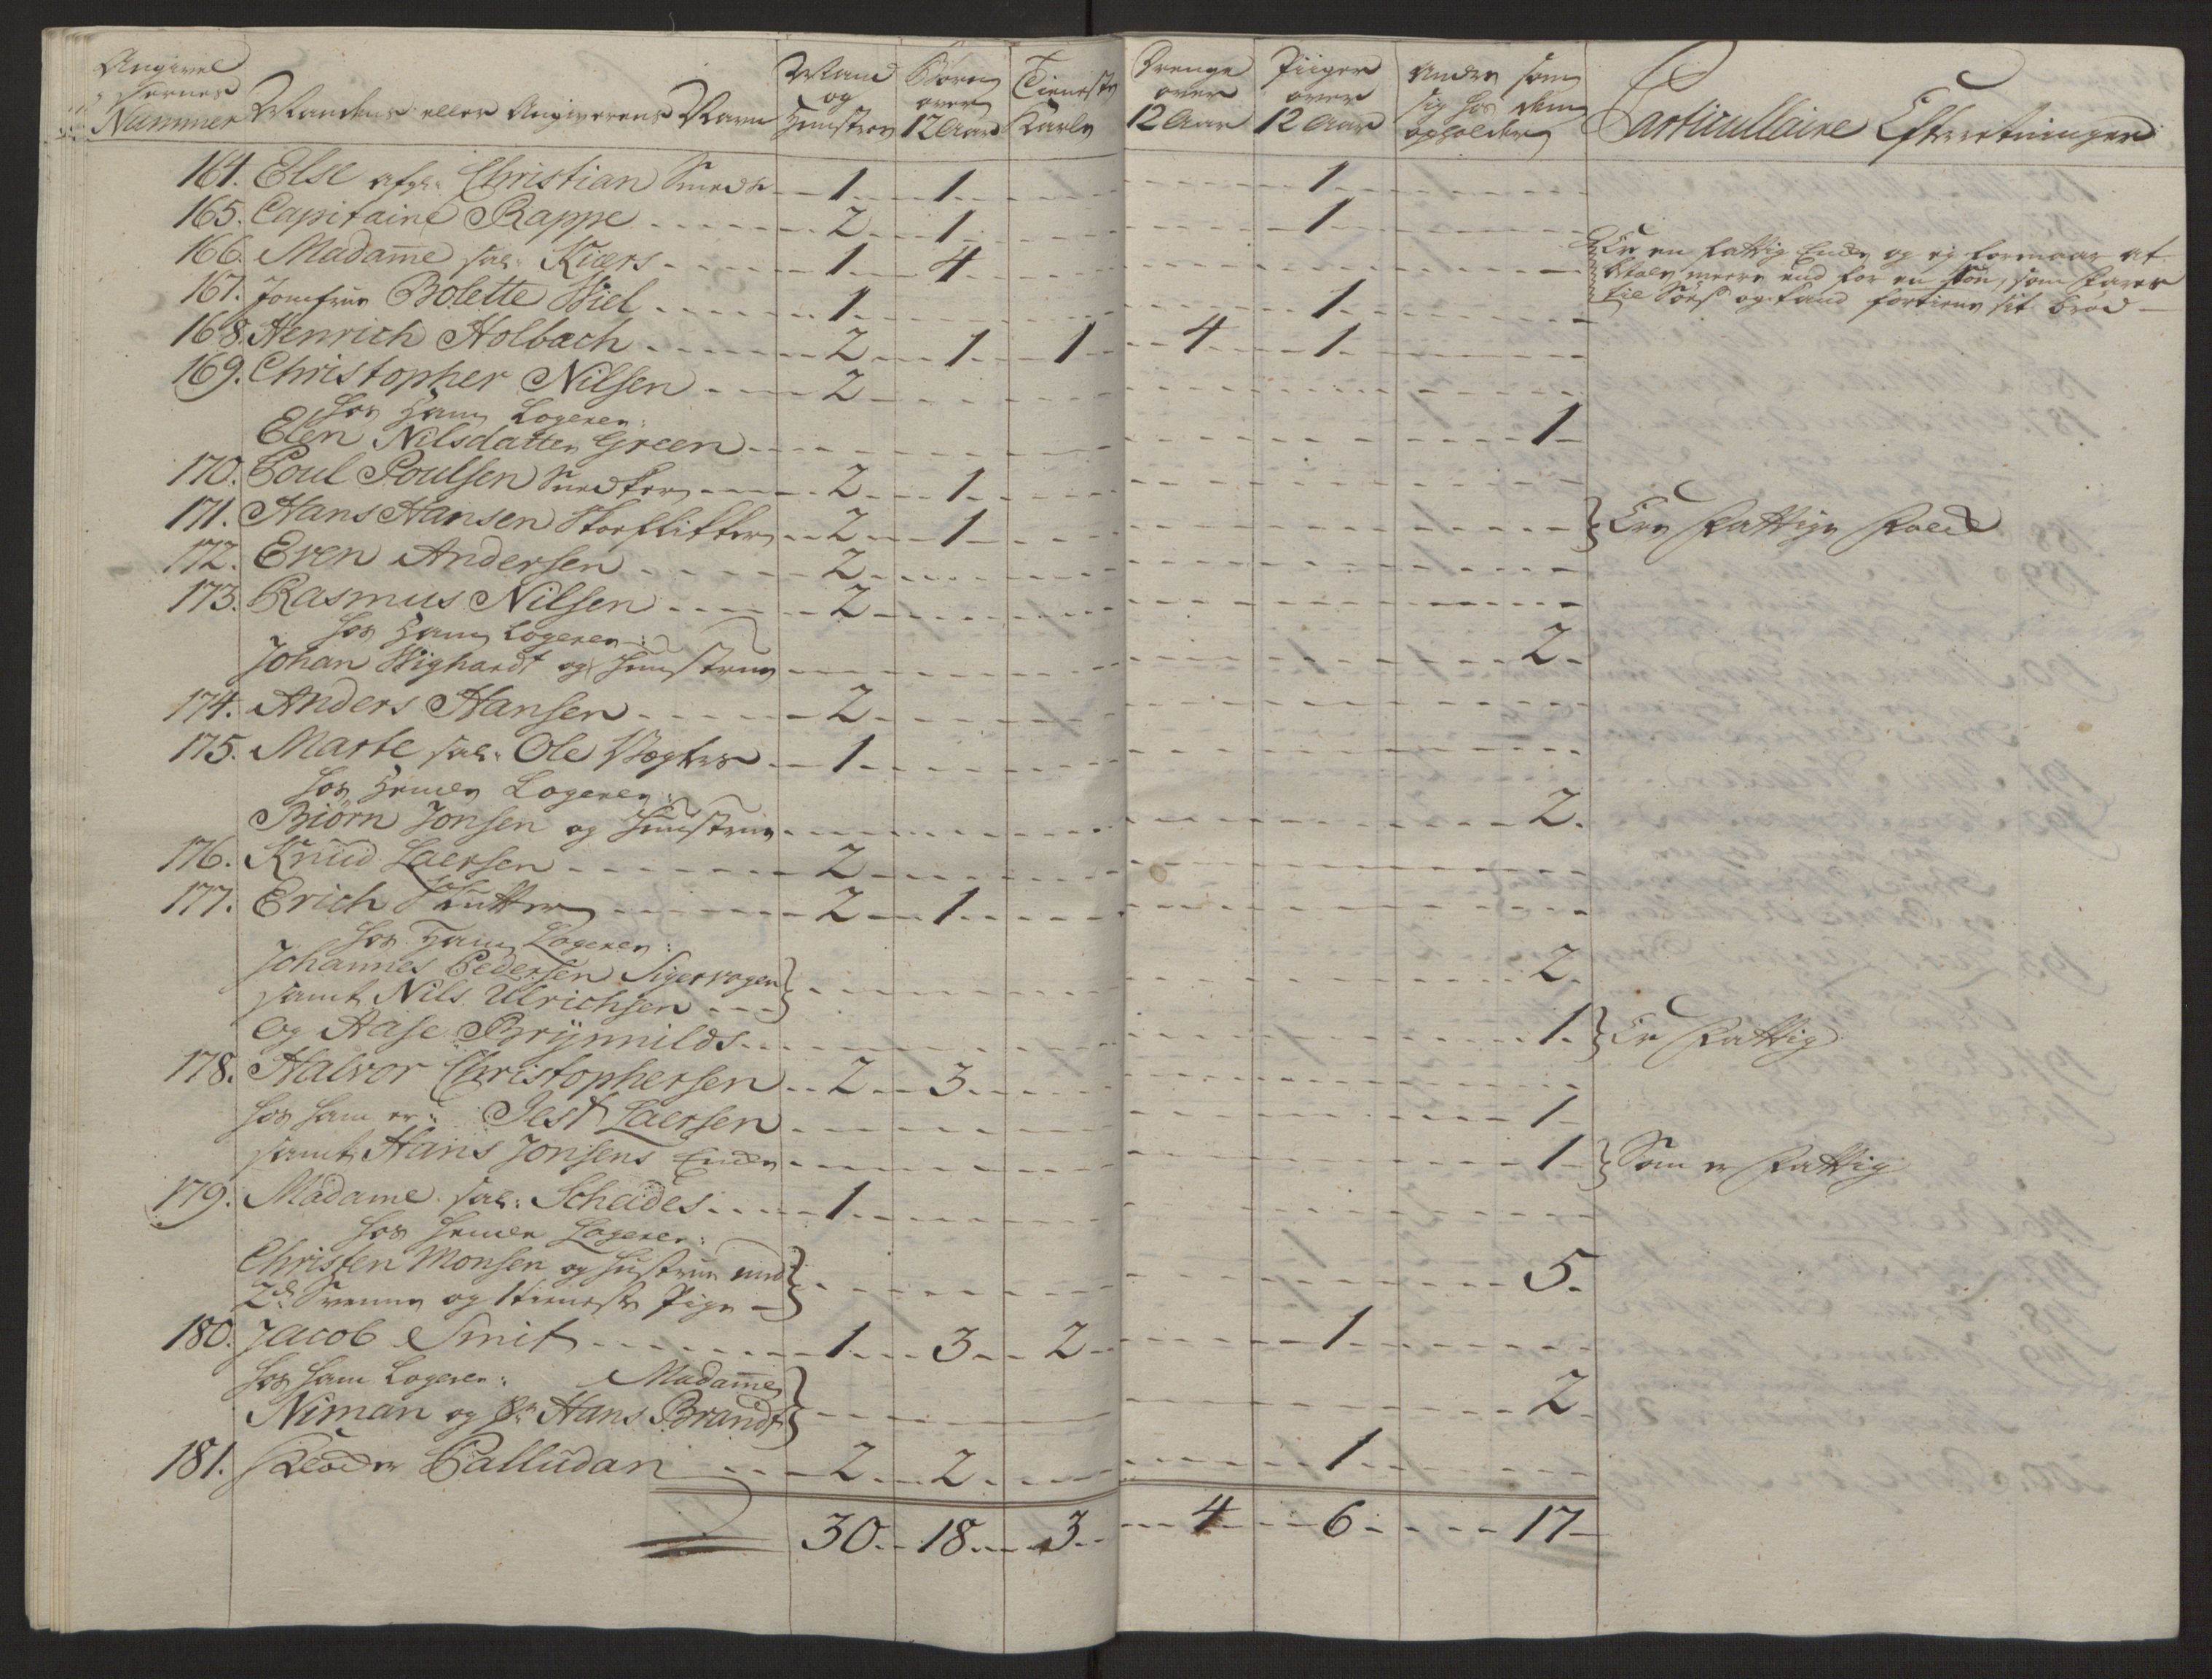 Angivel
sernes
Nummer Mandens eller Angiverens Navn
Mand og Hustroe
Børn over 12 Aar
Tieneste Karle
Drenge over 12 Aar
Piiger over 12 Aar
Andre som sig hos dem opholder
Particullaire Efterretninger
164. Else afg: Christian Smeds 1 1 1
165. Capitaine Rappe 2 1 1
166. Madame sal: Kiærs 1 4 Er en fattig Enke og ej formaar at
betale meere end for en Søn, som farer
til Søes og kand fortiene sit brød
167. Jomfrue Bolette Wiel 1 1
168. Henrich Holbach 2 1 1 4 1
169. Christopher Nilsen 2
hos ham Logerer:
Elen Nilsdatter Green 1
170. Poul Poulsen Snedker 2 1
171. Hans Hansen Skoeflikker 2 1 Ere fattige folk
172. Even Andersen 2
173. Rasmus Nilsen 2
hos ham Logerer:
Johan Wighardt og Hustrue 2
174. Anders Hansen 2
175. Marte sal: Ole Vægters 1
hos hende Logerer:
Biörn Jonsen og Hustrue 2
176. Knud Laersen 2
177. Erich Skutter 2 1
hos ham Logerer:
Johannes Pedersen Sigervogen
samt Nils Ulrichsen 2
og Aase Brynnilds 1 Er fattig
178. Halvor Christophersen 2 3
hos ham er: Jest Laersen 1
samt Hans Jonsens Enke 1 Som er fattig
179. Madame sal: Scheides 1
hos hende Logerer:
Christen Monsen og Hustrue med
2de Svenne og 1 tieneste Pige 5
180. Jacob Smit 1 3 2 1
hos ham Logerer: Madame
Niman og Sr Hans Brandt 2
181. Palludan 2 2 1
30 18 3 4 6 17